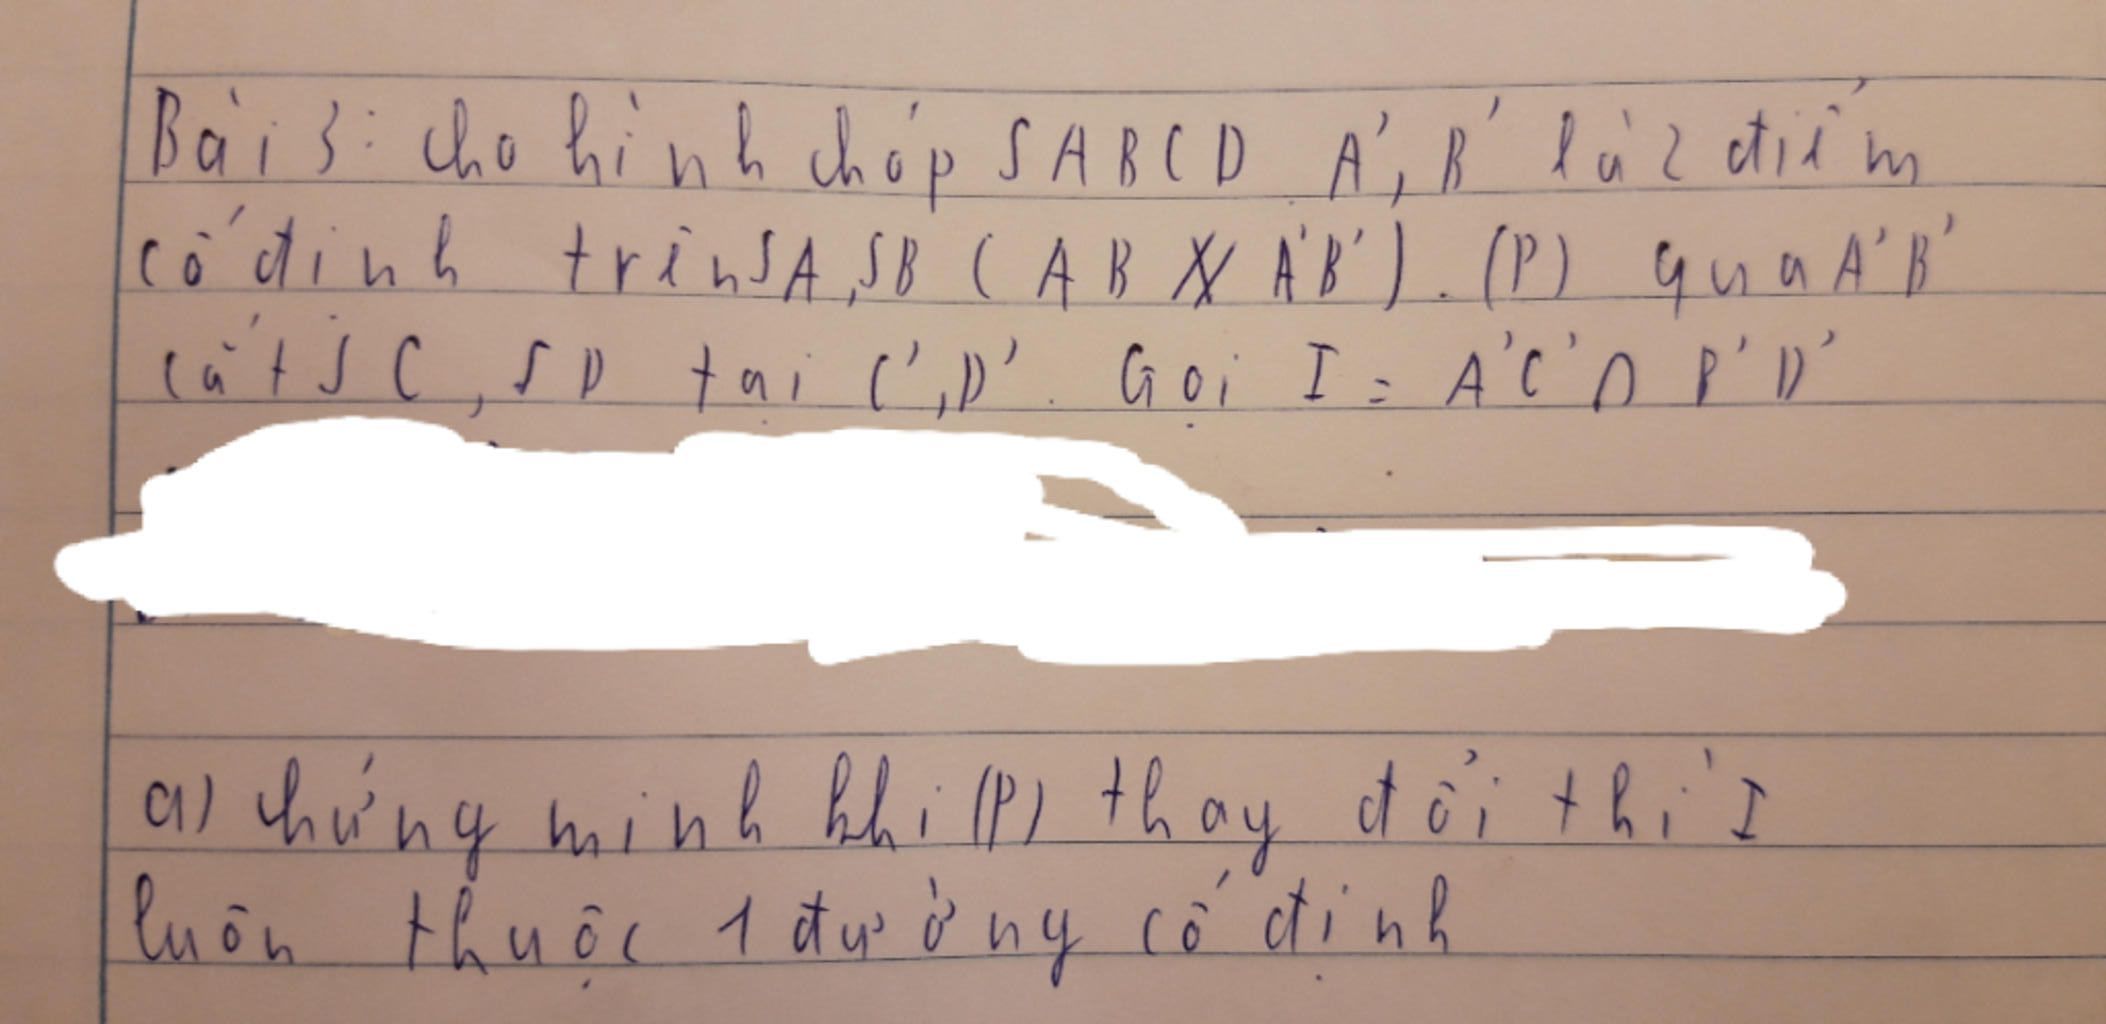 Bài 3: cho hình chóp SABCD A', B' là 2 điểm
cố định trên SA, SB (AB ∦ A'B'). (P) qua A'B'
cắt SC, SD tại C', D'. Gọi I = A'C' ∩ B'D'
a) chứng minh khi (P) thay đổi thì I
luôn thuộc 1 đường cố định